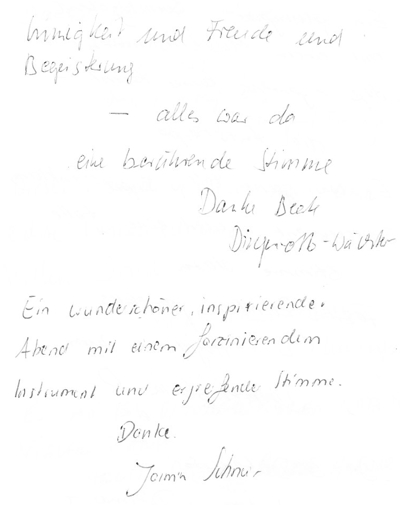 Innigkeit und Freude und
Begeisterung
— alles war da
eine berührende Stimme
Danke Beate
Ein wunderschöner, inspirierender
Abend mit einem faszinierendem
Instrument und ergreifende Stimme.
Danke.